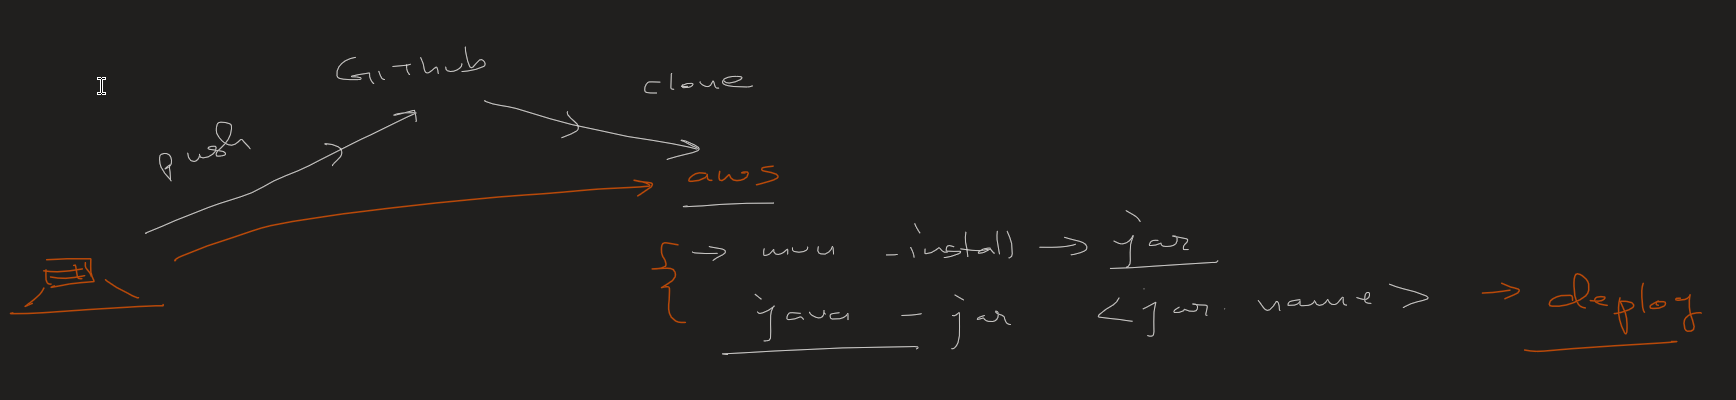 GitHub
clone
push
aws
→ mvn -install → jar
java - jar <jar. name> → deploy